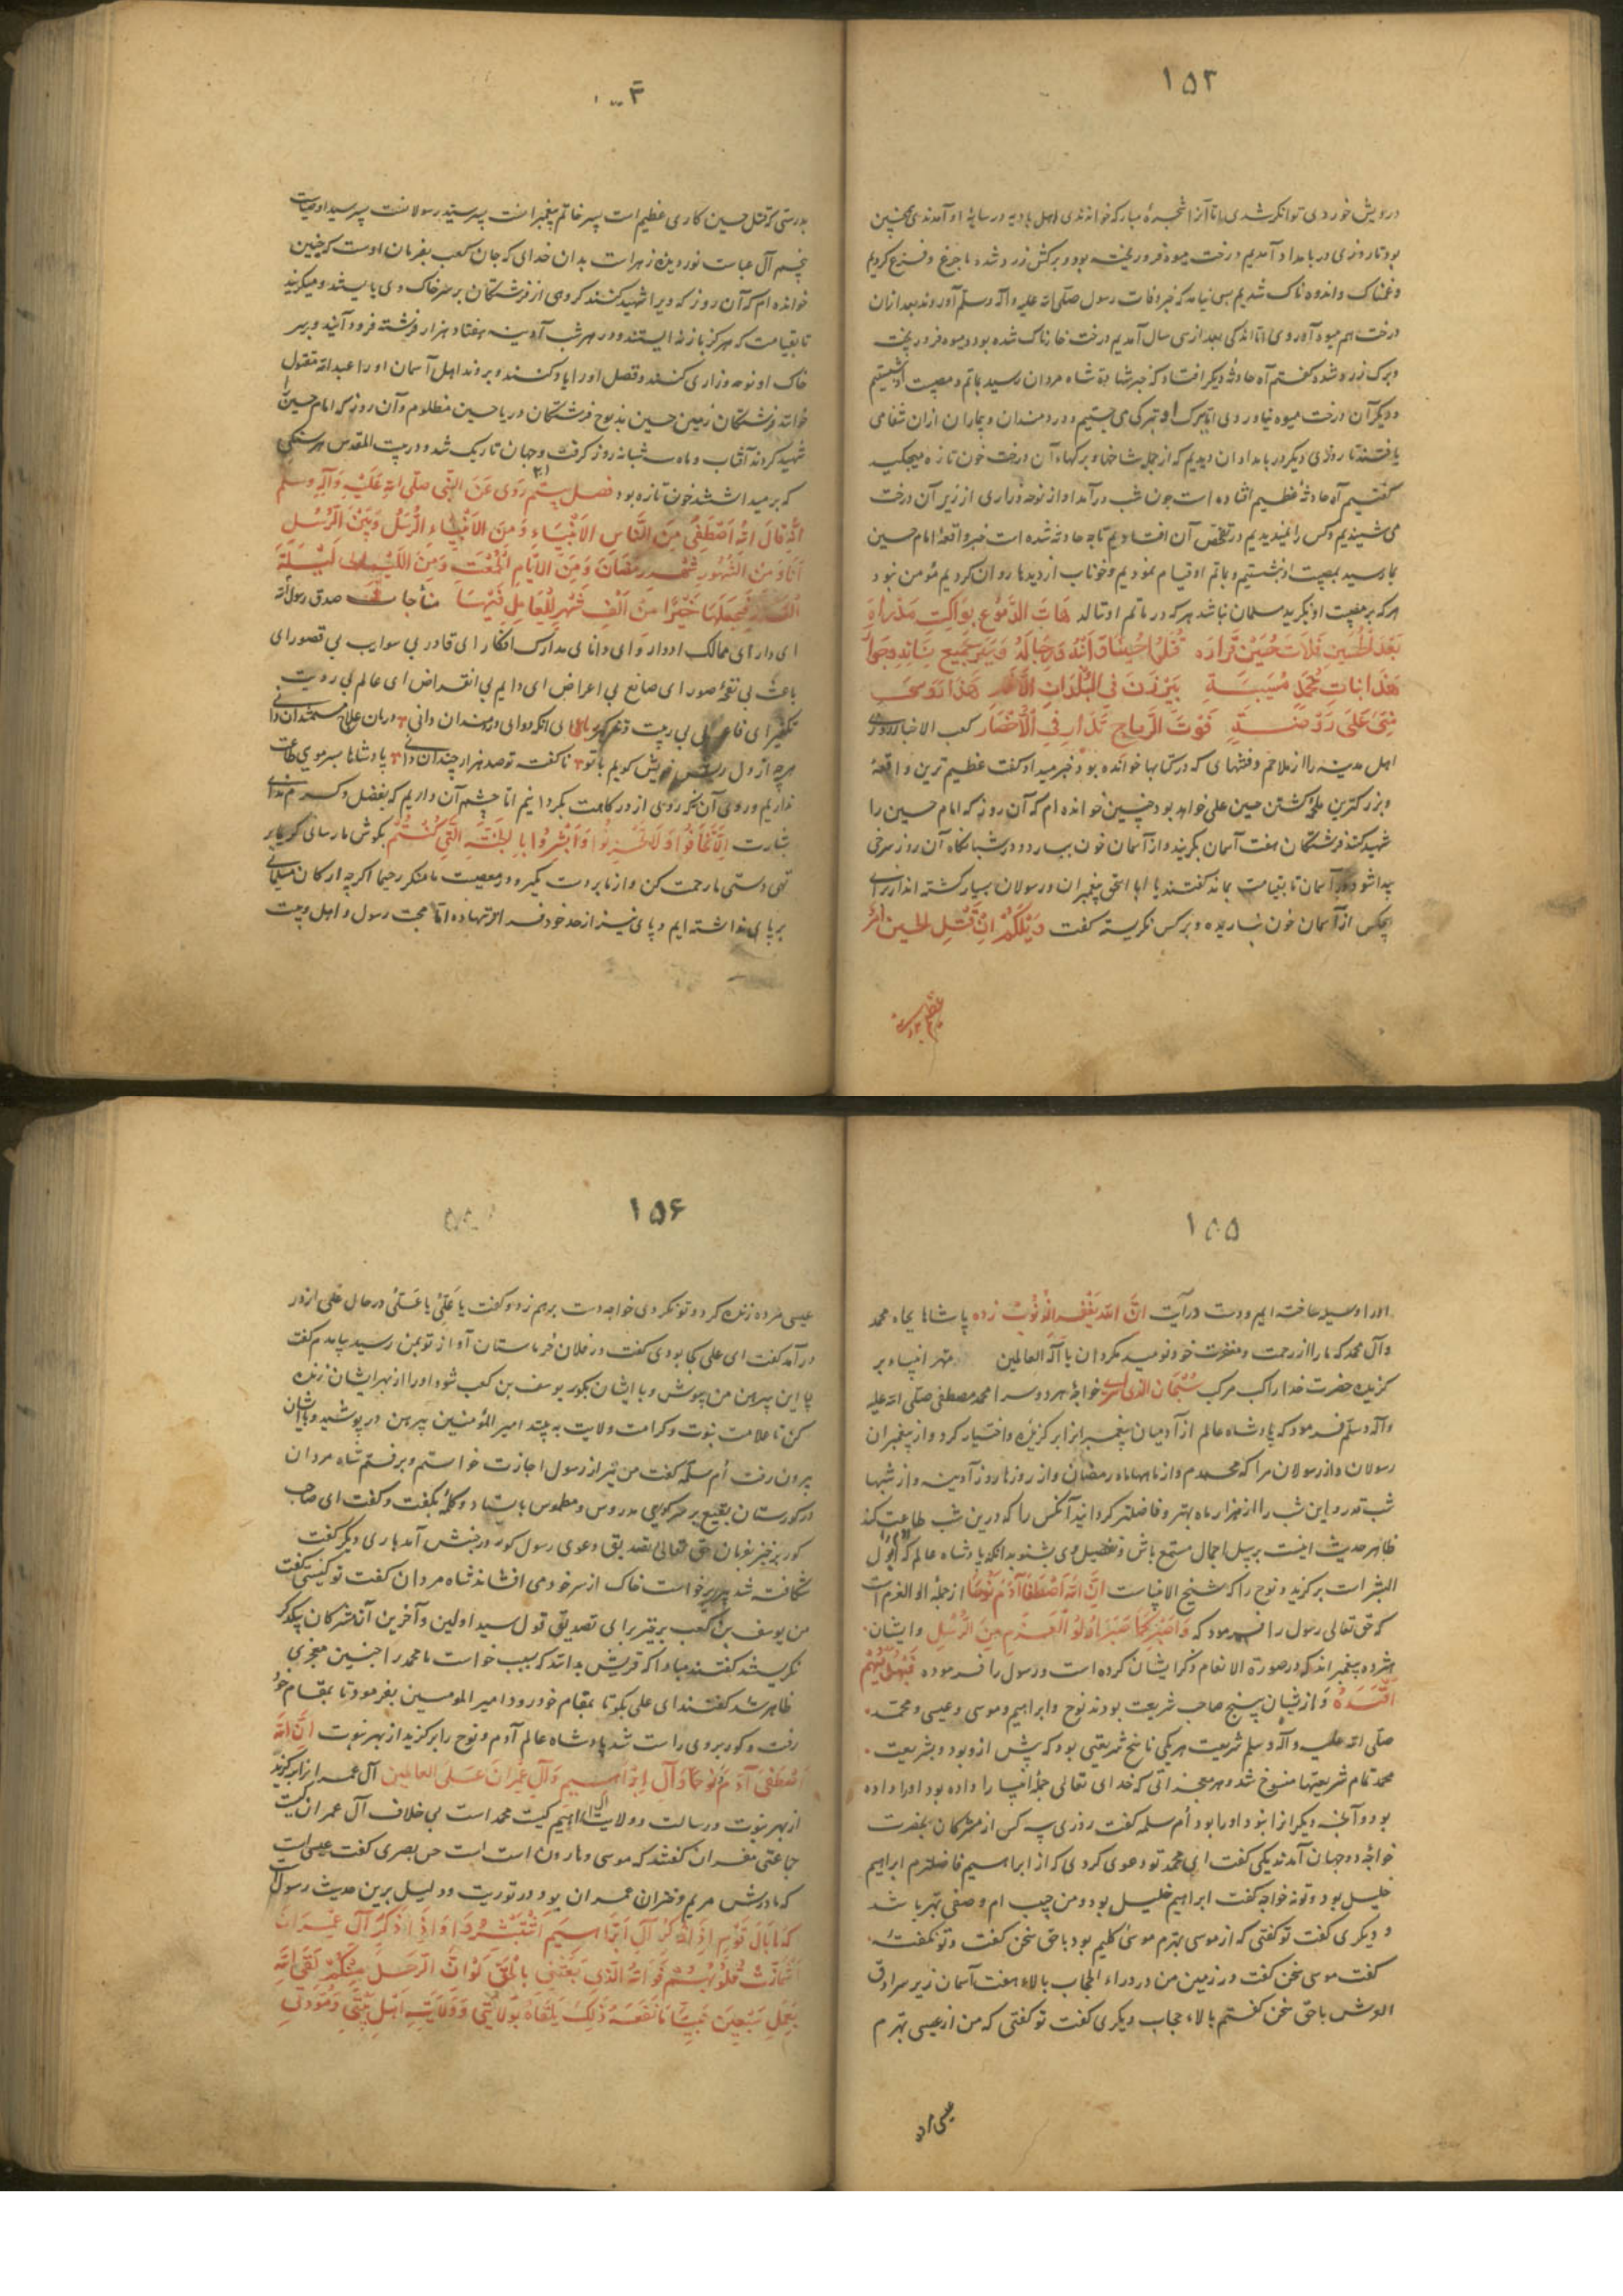 ١٥٣
درویش خوردی توانکر شدی اما آنرا شجرهٔ مبارکه خواندندی اهل بادیه در سایهٔ او آمدندی همچنین
بود تا روزی در بامداد آمدیم درخت میوه فرو ریخته بود و برکش زرد شده ما جزع و فزع کردیم
و غمناک و اندوه ناک شدیم بسی نیامد که خبر وفات رسول صلی الله علیه و آله وسلم آوردند بعد از آن
درخت هم میوه آوردی اما اندکی بعد از سی سال آمدیم درخت خارناک شده بود و میوه فرو ریخت
و برک زرد شده کفتم آه حادثهٔ دیکر افتاد که خبر شهادت شاه مردان رسید بماتم و مصیبت او نشستیم
و دیکر آن درخت میوه نیاوردی اما ببرک او تبرک می جستیم و دردمندان و بیماران از آن شفا می
یافتند تا روزی دیکر در بامدادان دیدیم که از جمله شاخها و برکهاء آن درخت خون تازه میچکید
کفتیم آه حادثهٔ عظیم افتاده است چون شب درآمد آواز نوحه و زاری از زیر آن درخت
می شنیدیم و کس را نمیدیدیم در تفحص آن افتادیم تا چه حادثه شده است خبر واقعهٔ امام حسین
بما رسید بمصیبت او نشستیم و ماتم او قیام نمودیم و خوناب از دیدها روان کردیم مؤمن نبود
هرکه بر مصیبت او نکرید مسلمان نباشد هرکه در ماتم او ننالد هَاتِ الدُّمُوعِ بَوَاکِت مِدْرَاةٍ
بَعْدَ الْحُسَیْنِ فَلَاتَ حُیْنَ قَرَارَه
هَذَا بَنَاتِ مُحَمَّدٍ مُسَبَیَّةٍ بَیْرَزْنَ فِی الْبُلْدَانِ
کعب الاخبار روزی
اهل مدینه را از ملاحم و فتنهای که در کتابها خوانده بود خبر میداد کفت عظیم ترین واقعهٔ
و بزرکترین کشتن حسین علی خواهد بود چنین خوانده ام که آن روز که امام حسین را
شهید کنند فرشتکان هفت آسمان بکریند و از آسمان خون ببارد و در شبانکاه آن روز سرخی
پیدا شود در آسمان تا بقیامت بماند کفتند یا ابا اسحق پیغمبران و رسولان بسیار کشته اند از برای
هیچکس از آسمان خون نباریده و بر کس نکریسته کفت وَیْلَکُمْ اِنَّ قَتْلِ الحسین امر
عظیم
٣
بدرستی که قتل حسین کاری عظیم است پسر خاتم پیغمبرانست پسر سید رسولانست پسر سید اوصیاست
پنجم آل عباست نور دیدهٔ زهراست بدان خدای که جان کعب بفرمان اوست که چنین
خوانده ام که آن روز که ویرا شهید کنند کروهی از فرشتکان بر سر خاک وی بایستند و میکریند
تا بقیامت که هرکز باز نه ایستند و در هر شب آدینه هفتاد هزار فرشته فرود آیند و بر سر
خاک او نوحه و زاری کنند و فضل او را یاد کنند و بروند اهل آسمان او را عبدالله مقتول
خوانند فرشتکان زمین حسین مذبوح فرشتکان دریا حسین مظلوم و آن روز که امام حسین را
شهید کردند آفتاب و ماه سه شبانه روز کرفت و جهان تاریک شد و در بیت المقدس هر سنکی
که برمیداشتند خون تازه بود فصل بیستم رَوی عَنِ النَّبِی صلی الله عَلَیْهِ وَآلِهِ وسلم
اَنَّهُ قَالَ اللّٰهُ اَصْطَفَیٰ مِنَ النَّاسِ الاَنْبِیَاءِ وَمِنَ الاَنْبِیَاءِ الرُّسُلُ وَمِنَ الرُّسُلِ
اَنَا وَمِنَ الشُّهُورِ شَهْرِ رَمَضَانَ وَمِنَ الاَیَّامِ الْجُمْعَةِ وَمِنَ اللَّیَالِی لَیْلَةَ
الْقَدْرِ فَجَعَلَهَا خَیْرًا مِنْ اَلْفِ شَهْرٍ لِلْعَامِلِ فِیْهَا مناجات صدق رسول الله
ای دارای ممالک ادوار و ای دانای مدارس افکار ای قادر بی سوایب بی قصور ای
باعث بی نفخهٔ صور ای صانع بی اعراض ای دایم بی انقراض ای عالم بی رویت
تفکیر ای فاعل بی ای آنکه دوای دردمندان دانی ۳ درمان علاج مستمندان دانی
هرچه از دل ریش خویش کویم با تو ۳ ناکفته تو صد هزار چندان دانی ۳ پادشاها سر موی طاعت
نداریم و روی آن که روی از درکاهت بکردانیم اما چشم آن داریم که بفضل و کرم ندای
بشارت اَلَّا تَخَافُوا وَلَا تَحْزَنُوا وَاَبْشِرُوا بِالْجَنَّةِ الَّتِی کُنْتُمْ بکوش ما رسانی کریما بر
تهی دستی ما رحمت کن و از ما بر دست مکیر و در معصیت ما منکر رحیما اکرچه ارکان مسلمانی
بر پای نداشته ایم و پای نیز از حد خود فراتر نهاده اما محبت رسول و اهل و بیت
١٥٥
او را وسیله ساخته ایم و دست در آیت اِنَّ اللّٰه یَغْفِرُ الذُّنُوبَ زده پاشاها بجاه محمد
و آل محمد که ما را از رحمت و مغفرت خود نومید مکردان یا اله العالمین مهتر انبیا و بر
کزیدهٔ حضرت خدا راکب مرکب سُبْحَانَ الَّذِی اسری خواجهٔ هر دو سرا محمد مصطفی صلی الله علیه
و آله وسلم فرمود که پادشاه عالم از آدمیان پیغمبرانرا برکزیده و اختیار کرد و از پیغمبران
رسولان و از رسولان مرا که محمدم و از ماهها ماه رمضان و از روزها روز آدینه و از شبها
شب قدر و این شب را از هزار ماه بهتر و فاضلتر کردانید آنکس را که درین شب طاعت کند
ظاهر حدیث اینست بر سبیل اجمال مستمع باش و تفصیل می بشنو بدانکه پادشاه عالم آدم که اول
البشر است برکزید و نوح را که شیخ الانبیاست اِنَّ اللّٰهَ اصْطَفَیٰ آدَمَ وَنُوحًا از جملهٔ اولوالعزم است
که حق تعالی رسول را فرمود که وَاصْبِرْ کَمَا صَبَرَ اُولُو الْعَزْمِ مِنَ الرُّسُلِ و ایشان
هژده پیغمبراند که در صورة الانعام ذکر ایشان کرده است و رسول را فرموده فَبِهُدٰیهُمْ
اقْتَدِهْ و از ایشان پنج صاحب شریعت بودند نوح و ابراهیم و موسی و عیسی و محمد
صلی الله علیه و آله وسلم شریعت هر یکی ناسخ شریعتی بود که پیش ازو بود و بشریعت
محمد تمام شریعتها منسوخ شد و هر معجزاتی که خدای تعالی جملهٔ انبیا را داده بود او را داده
بود و آنچه دیکرانرا نبود او را بود ام سلمه کفت روزی سه کس از مشرکان بحضرت
خواجهٔ دو جهان آمدند یکی کفت ای محمد تو دعوی کردی که از ابراهیم فاضلترم ابراهیم
خلیل بود و تو نه خواجه کفت ابراهیم خلیل بود و من حبیب ام و صفی بهتر باشد
و دیکری کفت تو کفتی که از موسی بهترم موسی کلیم بود با حق سخن کفت و تو نکفتهٔ
کفت موسی سخن کفت در زمین من در وراء الحجاب بالاء هفت آسمان زیر سرادق
العرش با حق سخن کفتم بالاء حجاب دیکری کفت تو کفتی که من از عیسی بهترم
عیسی مرده
١٥۶
عیسی مرده زنده کرد و تو نکردی خواجه دست برهم زد و کفت یا عَلِیُّ یا عَلِیُّ در حال علی از در
درآمد کفت ای علی کجا بودی کفت در فلان خرماستان آواز تو بمن رسید بیامدم کفت
بیا این پیرهن من بپوش و با ایشان بکور یوسف بن کعب شو و او را از بهر ایشان زنده
کن تا علامت نبوت و کرامت ولایت ببینند امیر المؤمنین پیرهن درپوشید و با ایشان
بیرون رفت ام سلمه کفت من نیز از رسول اجازت خواستم و برفتم شاه مردان
در کورستان بقیع بر سر کوری مدروس و مطموس بایستاد و کلمهٔ بکفت و کفت ای صاحب
کور برخیز بفرمان حق تعالی بتصدیق دعوی رسول کور در جنبش آمد باری دیکر کفت
شکافته شد پیری برخواست خاک از سر خود می افشاند شاه مردان کفت تو کیستی کفت
من یوسف بن کعب برخیز برای تصدیق قول سید اولین و آخرین آن مشرکان بیکدیکر
نکریستند کفتند مبادا که قریش بدانند که بسبب خواست ما محمد را چنین معجزی
ظاهر شد کفتند ای علی بکو تا بمقام خود رود امیر المومنین بفرمود تا بمقام خود
رفت و کور بروی راست شد پادشاه عالم آدم و نوح را برکزید از بهر نبوت اِنَّ اللّٰهَ
اصْطَفَیٰ آدَمَ وَنُوحًا وَآلَ اِبْرَاهِیمَ وَآلَ عِمْرَانَ عَلَی العالمین آل عمرانرا برکزید
از بهر نبوت و رسالت و ولایت ابراهیم کیست محمد است بی خلاف آل عمران کیست
جماعتی مفسران کفتند که موسی و هارون است حسن بصری کفت عیسی است
که مادرش مریم دختران عمران بود در توریت و دلیل برین حدیث رسول است
که مَا بَالَ قَوْمٍ اِذَا ذُکِرَ آلَ اِبْرَاهِیمَ اسْتَبْشِرُوا وَاِذَا ذُکِرَ آلَ عِمْرَانَ
اشْمَأَزَّتْ قُلُوبُهُمْ فَوَاللّٰهِ الَّذِی بَعَثَنِی بِالْحَقِّ لَوْ اَنَّ الرَّجُلَ مِنْکُمْ لَقِیَ اللّٰه
بِعَمَلِ سَبْعِینَ نَبِیًّا مَا نَفَعَهُ ذٰلِکَ یَلْقَاهُ بِوِلَایَتِی وَوِلَایَةِ اَهْلِ بَیْتِی وَمَوَدَّتِی